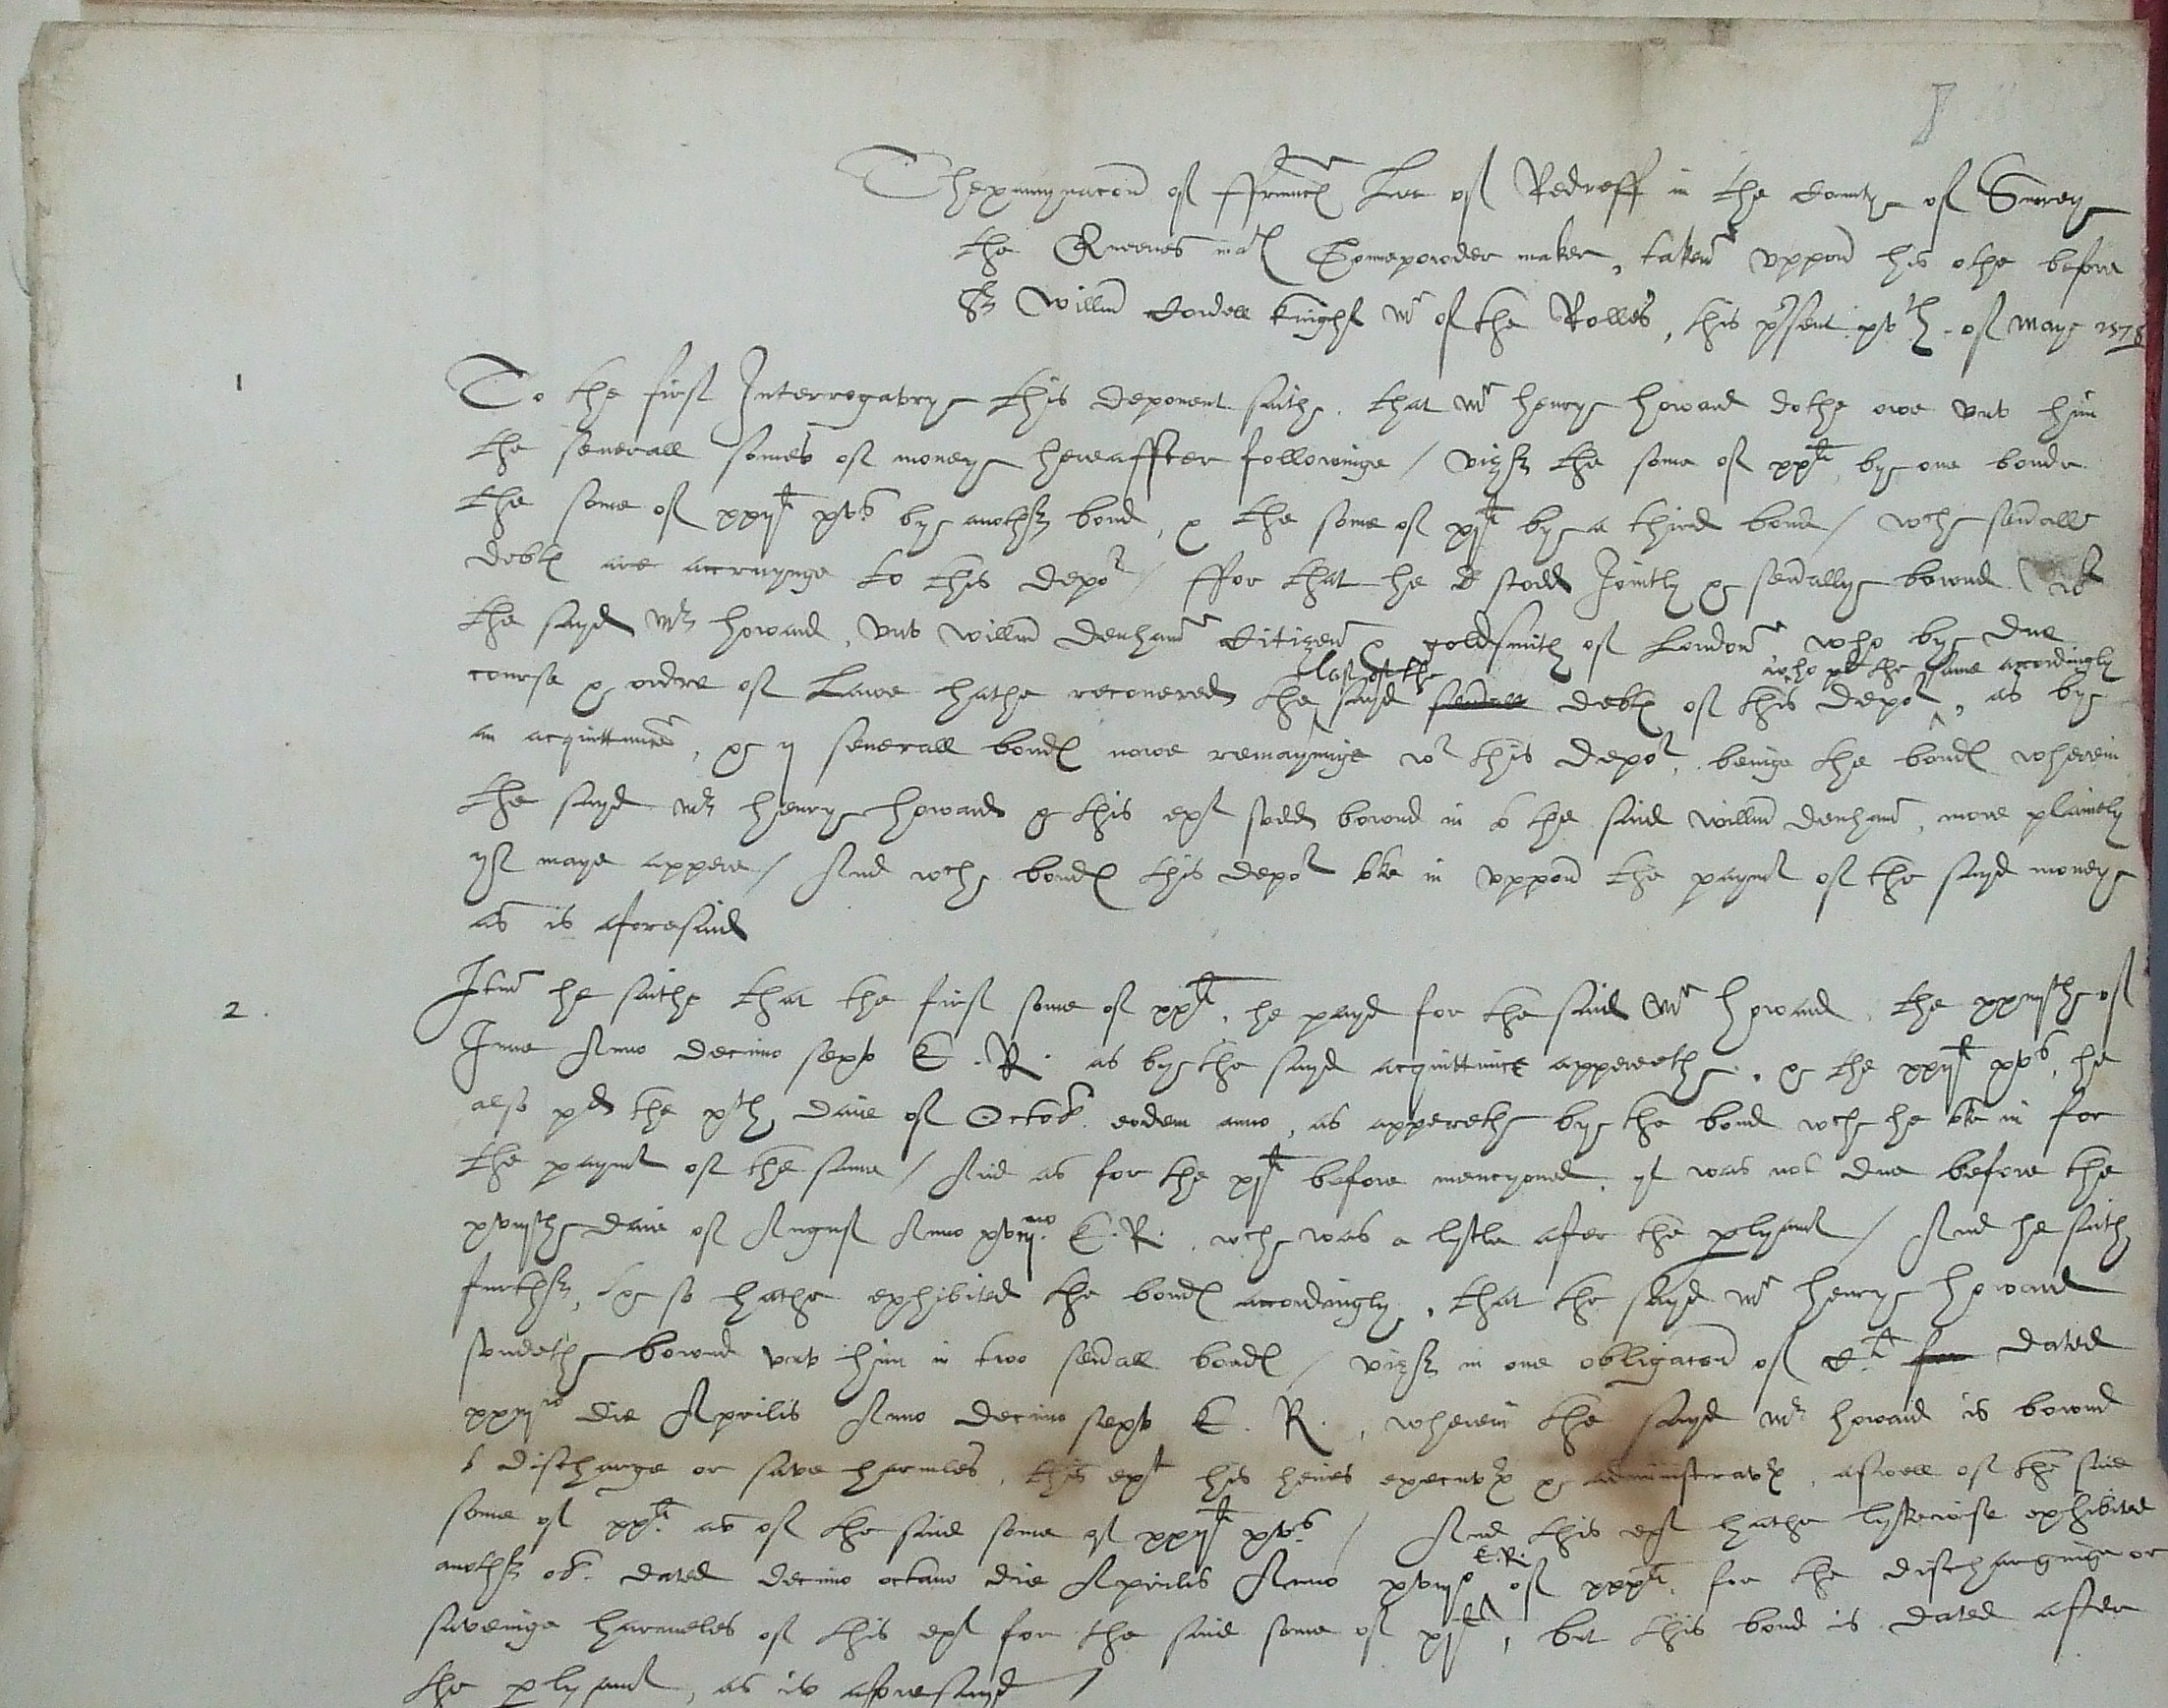 Thexamynacon of ffrauncs Lee of Redreff in the Countye of Surrey
the Queenes mats Gonnepowder maker, taken uppon his othe before
Sr Willm Cordell knight Mr of the Rolles, this prsent xvth of Maye 1578
1 To the first Interrogatorye this deponent saithe. that Mr henrye howard dothe owe unto him
the severall somes of moneye hereaffter followinge / vizt the some of xxli, bye one bonde
the some of xxijli xvs bye another bond, & the some of xjli bye a third bond / wche sevrall
debts are accruynge to this depot / ffor that he stoode Jointly & sevrallye bownd wt
the sayd Mr howard, unto Willm denham Citizen & goldsmith of London who bye due
course & ordre of Lawe hathe recovered the last of the sayd sevrall debts of this depot who pd the same accordingly, as bye
an acquittance, & ij severall bonds nowe remayninge wt this depot, beinge the bonds wherein
the sayd Mr henrye howard & this ext stoode bownd in to the said Willm denham, more plainely
yt maye appere / And wche bonds this depot toke in uppon the paymt of the sayd moneye
as is aforesaid
2. Itm he saithe that the first some of xxli, he payd for the said Mr howard, the of
June Anno decimo septo E. R. as bye the sayd acquittance apperethe, & the xxijli xvs, he
also pd the xth daie of Octob. eodem anno, as apperethe bye the bond wche he toke in for
the paymt of the same / And as for the xjli before mencyoned, yt was not due before the
xviijthe daie of August Anno E. R. wche was a lytle after the plyamt / And he saith
further, & so hathe exhibited the bonds accordingly, that the sayd Mr henrye howard
standethe bownd unto him in two sevrall bonds / vizt in one obligacon of li for dated
die Aprilis Anno decimo septo E. R., wherein the sayd Mr howard is bownd
to discharge or save harmles, this ext his heires executrs & administratrs, aswell of the said
some of xxli as of the said some of xxijli xvs / And this ext hathe lykewise exhibited
another ob. dated decimo octavo die Aprilis Anno xviijo E. R. of xxxli. for the discharginge or
saveinge harmeles of this ext for the said some of xjli, but this bond is dated after
the plyamt, as is aforesayd /